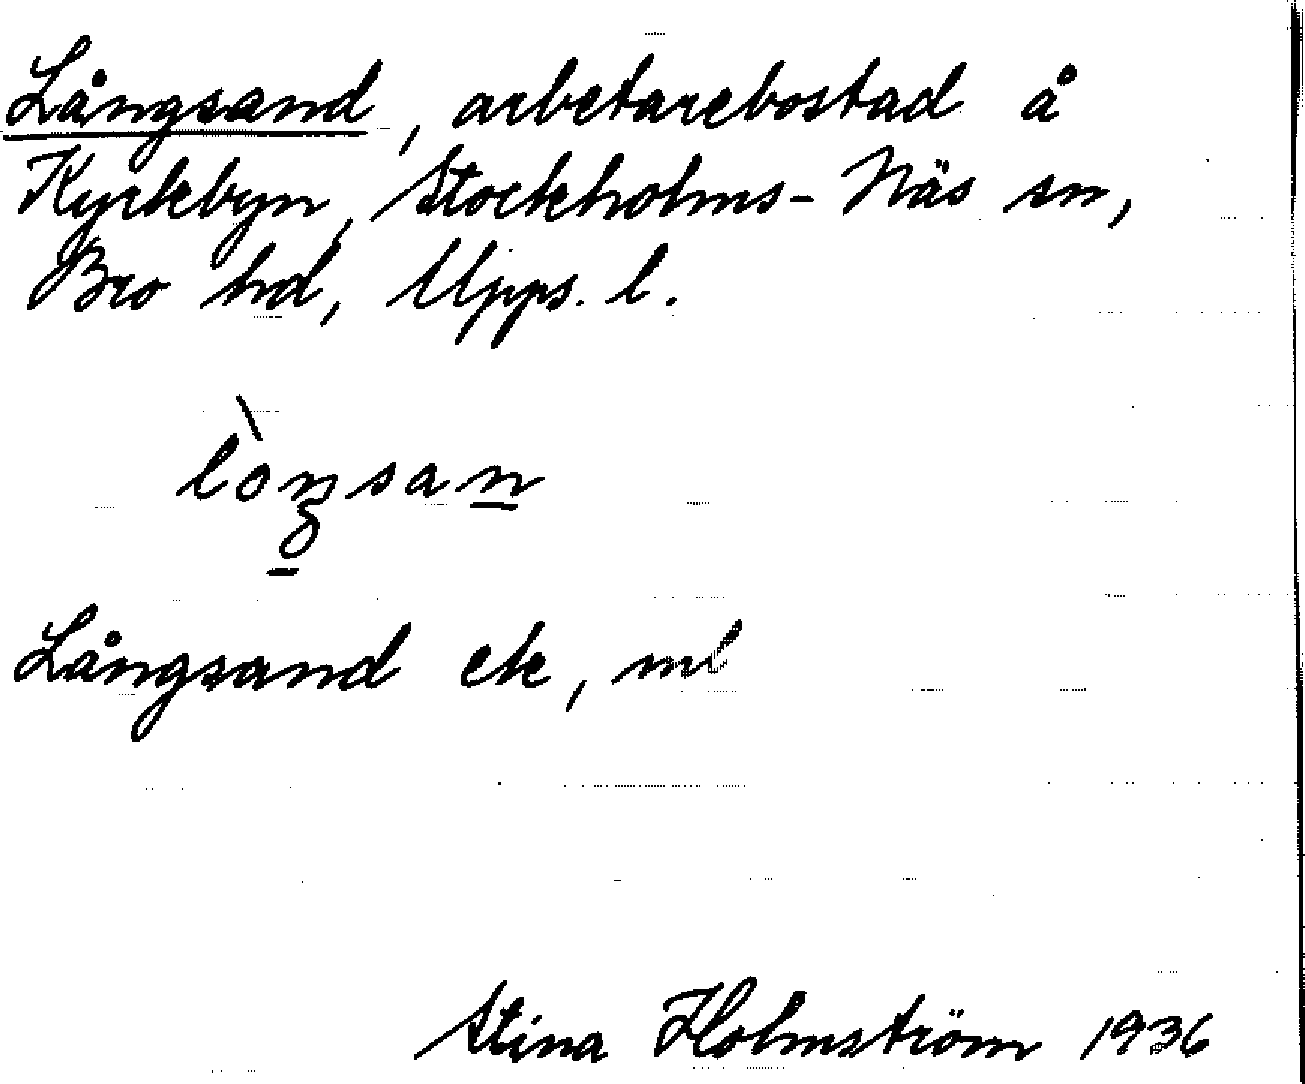 Långsand, arbetarebostad å
Kyrkbyn, Stockholms-Näs sn,
Bro hd, Upps. l.
lòŋsan
Långsand ek, ml
Stina Holmström 1936